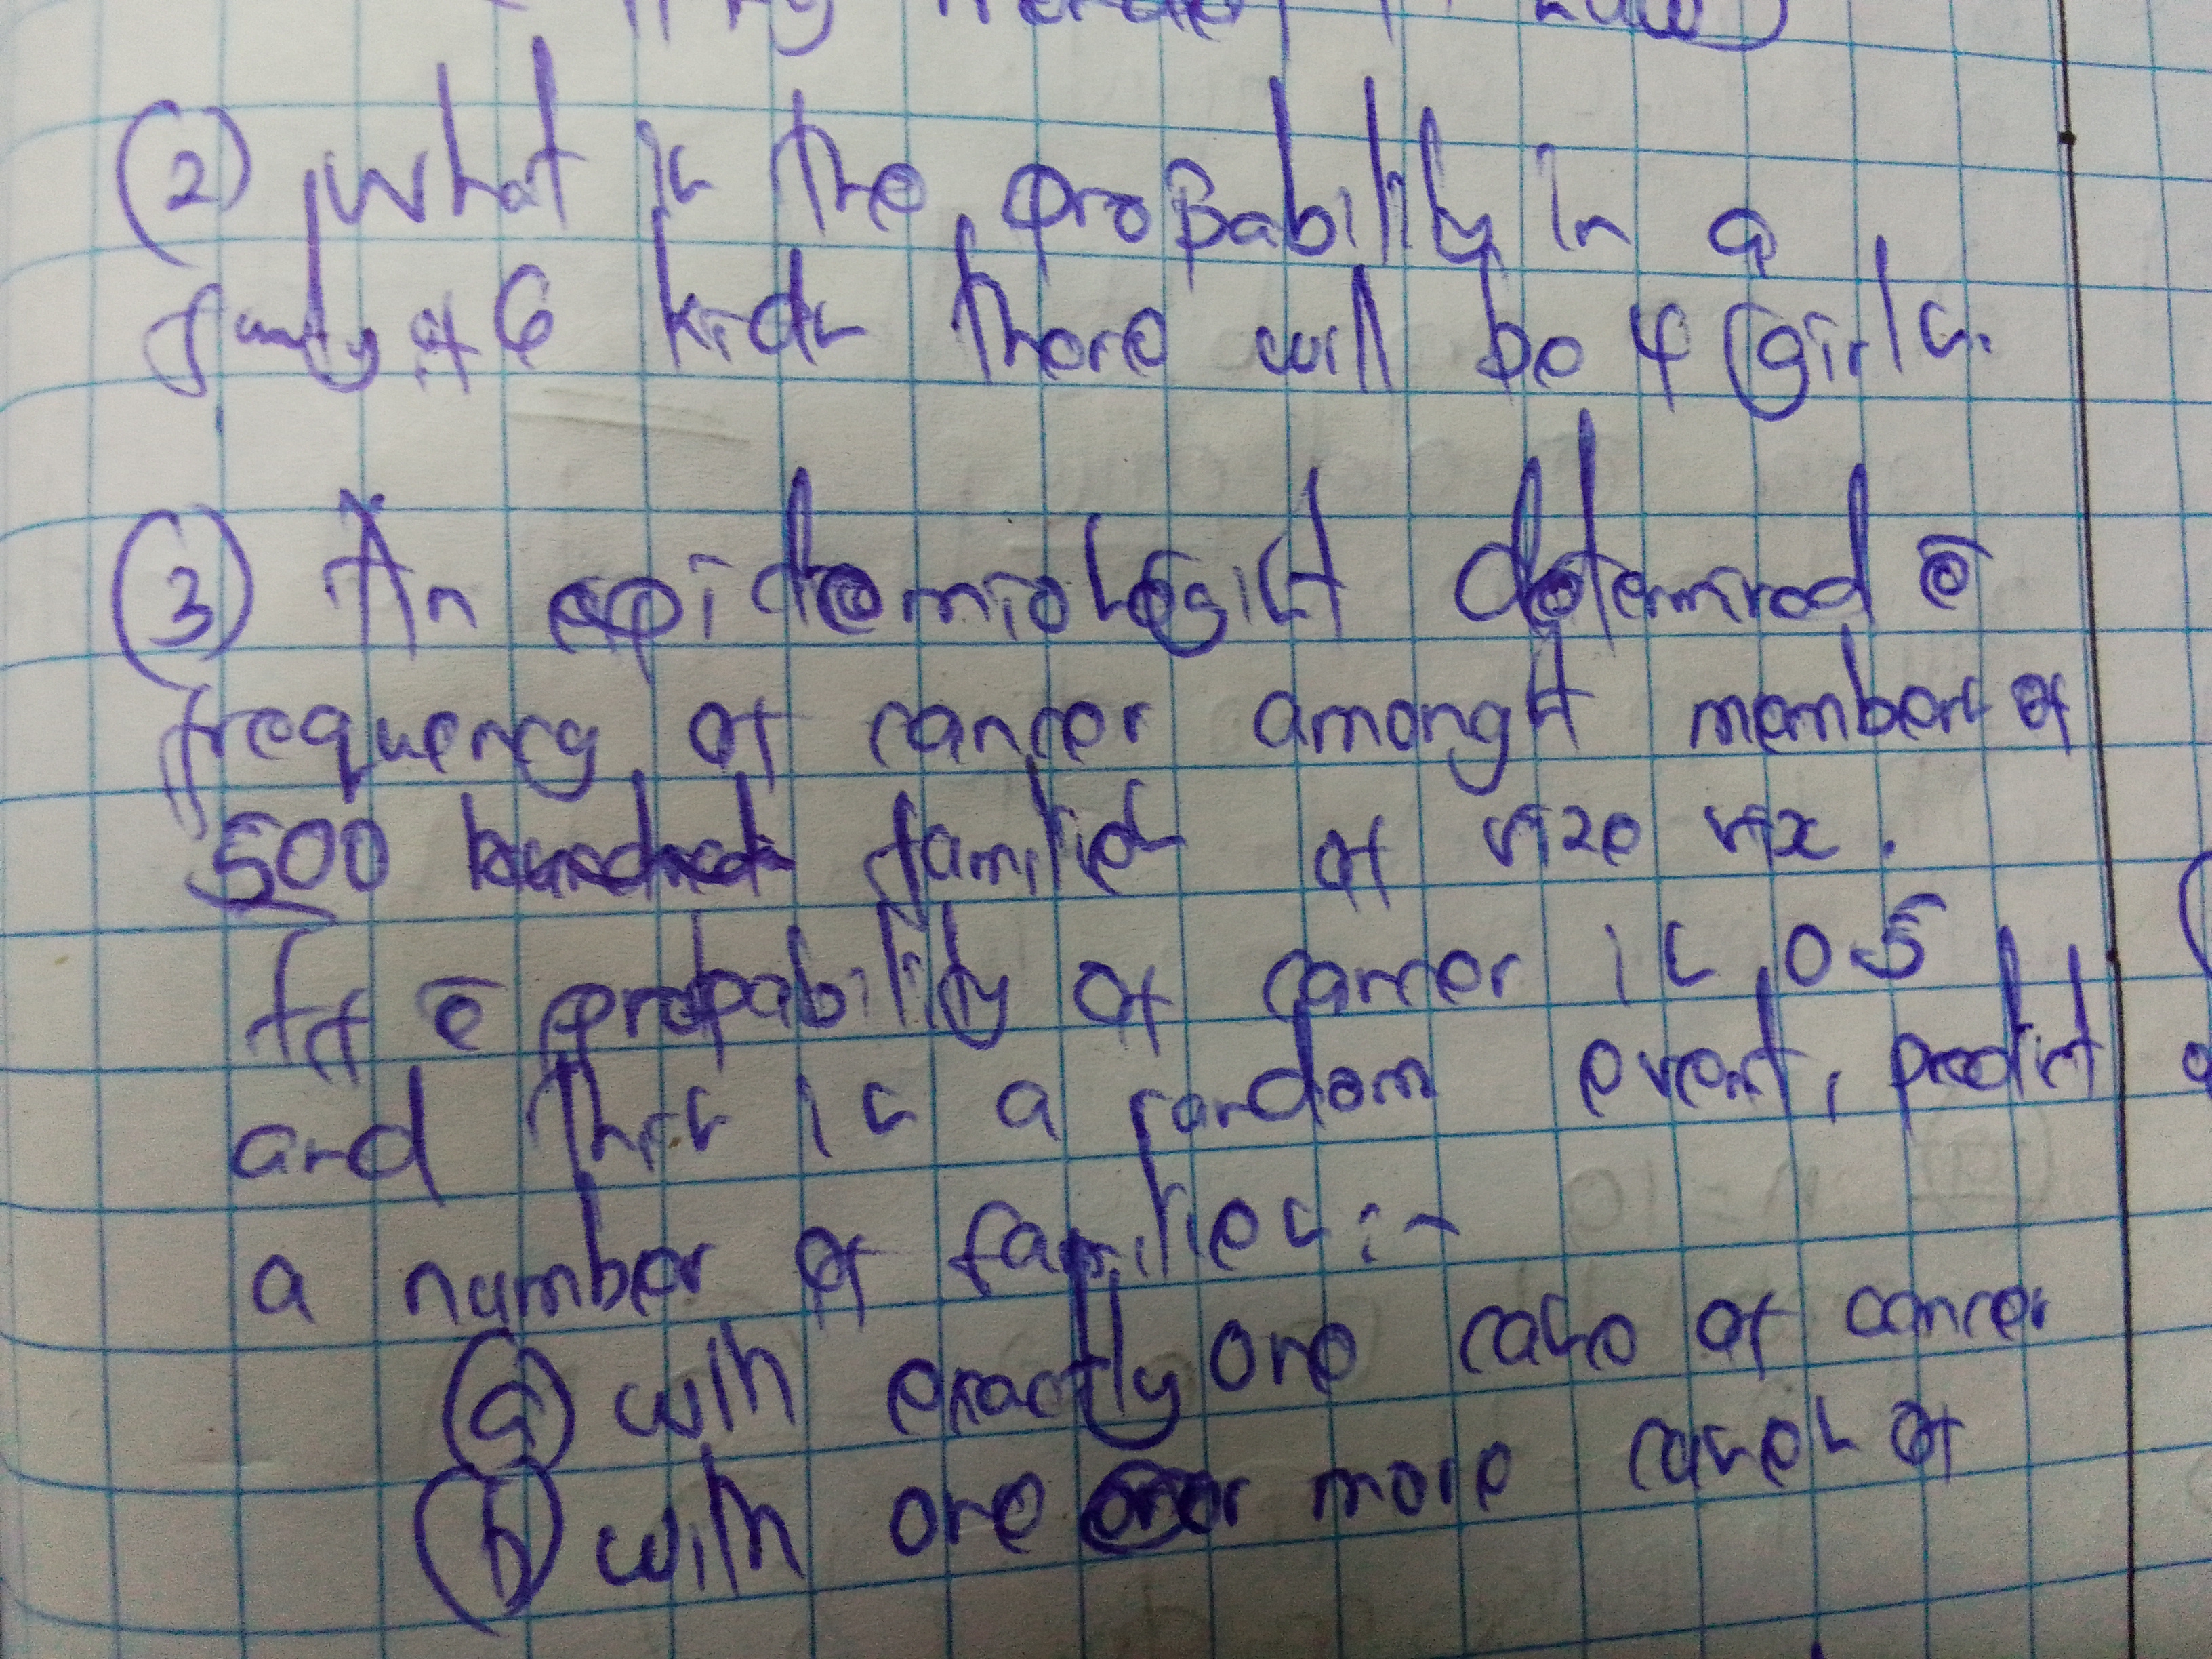 (2) What is the probability in a
family of 6 kids there will be 4 girls.
(3) An epidemiologist determined ē
frequency of cancer amongst members of
500 families of size six.
If ē probability of cancer is 0.5
and this is a random event, predict
a number of families :-
(a) with exactly one case of cancer
(b) with one or more cases of